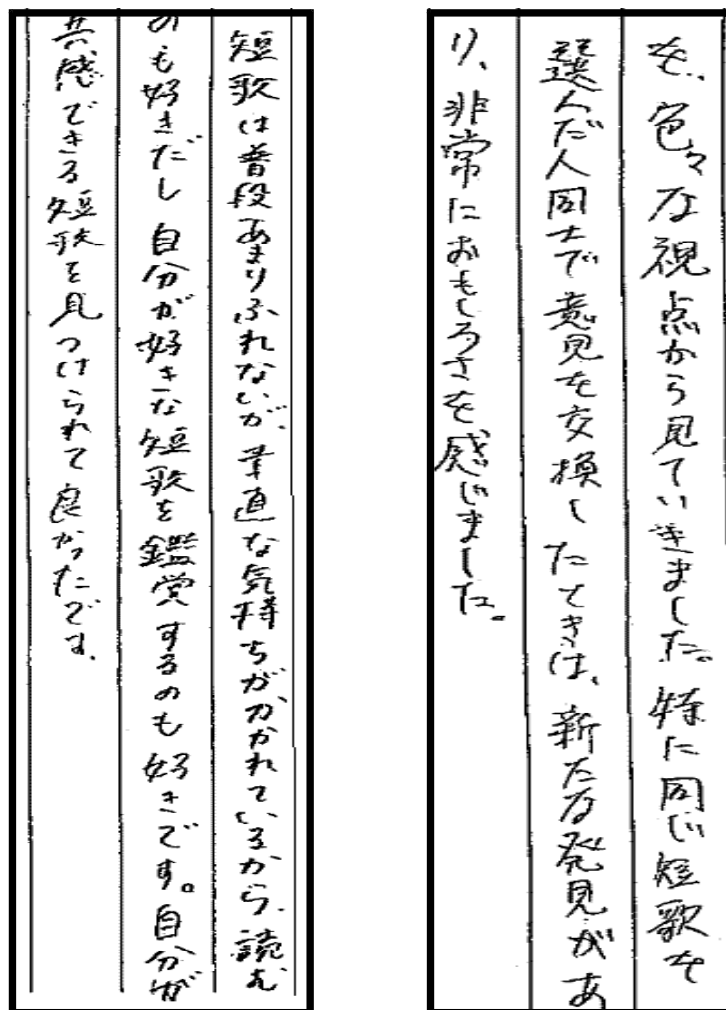 を、色々な視点から見ていきました。特に同じ短歌を
選んだ人同士で意見を交換したときは、新たな発見があ
り、非常におもしろさを感じました。
短歌は普段あまりふれないが、率直な気持ちがかかれているから、読む
のも好きだし自分が好きな短歌を鑑賞するのも好きです。自分が
共感できる短歌を見つけられて良かったです。